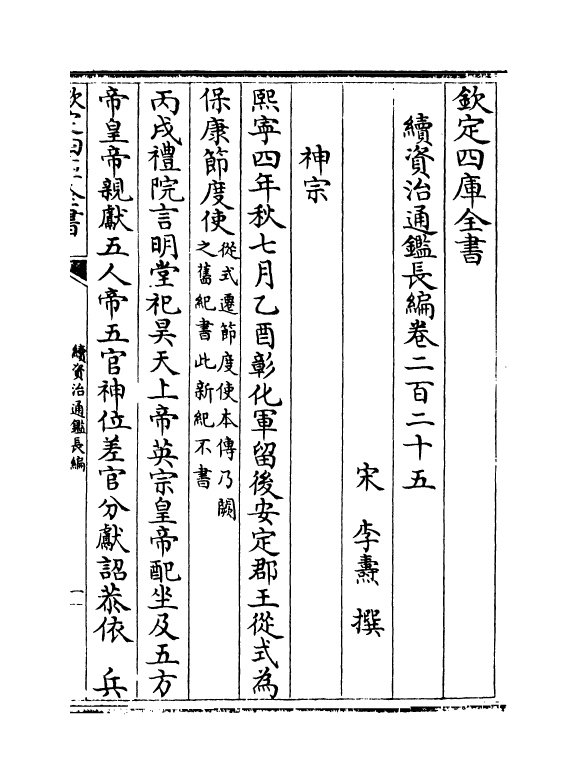 欽定四庫全書
續資治通鑑長編卷二百二十五
宋 李燾 撰
神宗
熙寧四年秋七月乙酉彰化軍留後安定郡王從式為
保康節度使從式遷節度使本傳乃闕
之舊紀書此新紀不書
丙戌禮院言明堂祀昊天上帝英宗皇帝配坐及五方
帝皇帝親獻五人帝五官神位差官分獻詔恭依 兵
欽定四庫全書
續資治通鑑長編
一